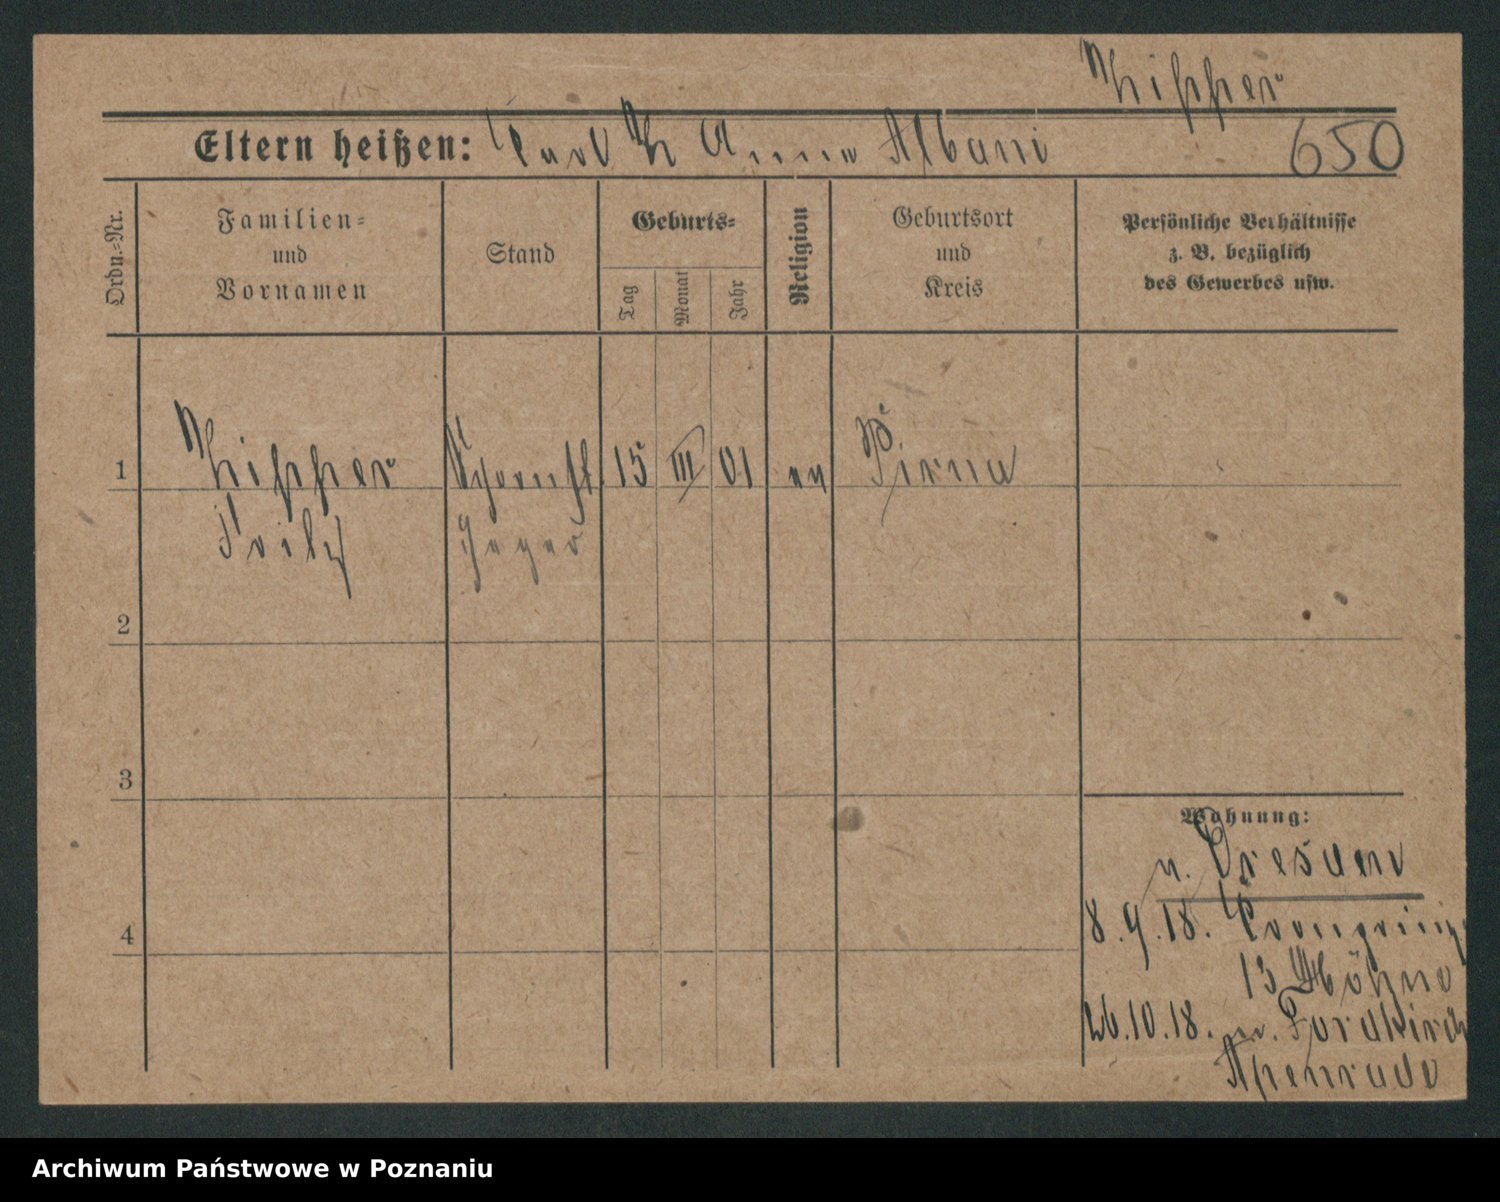 Eltern heißen: Karl u Anna Albani
650
Ordn.-Nr.
Familien-
und
Vornamen
Stand
Geburts-
Tag
Monat
Jahr
Religion
Geburtsort
und
Kreis
Persönliche Verhältnisse
z. B. bezüglich
des Gewerbes usw.
1
Schornst
15
III
01
ev
Pirna
feger
2
3
4
Wohnung:
n. Dresden
8.9.18. Kronprinz
13 Höhne
26.10.18. n. Fordkirch
Apenrade
Archiwum Państwowe w Poznaniu